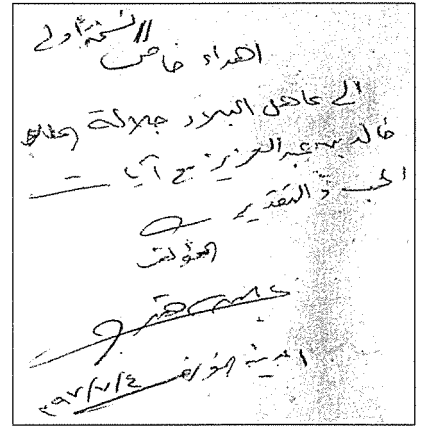 النسخة أولى
اهداء خاص
الى عاهل البلاد جلالة الملك
خالد بن عبدالعزيز مع آيات
الحب والتقدير
المؤلف
المدينة المنورة ٣٩٧/٧/٤